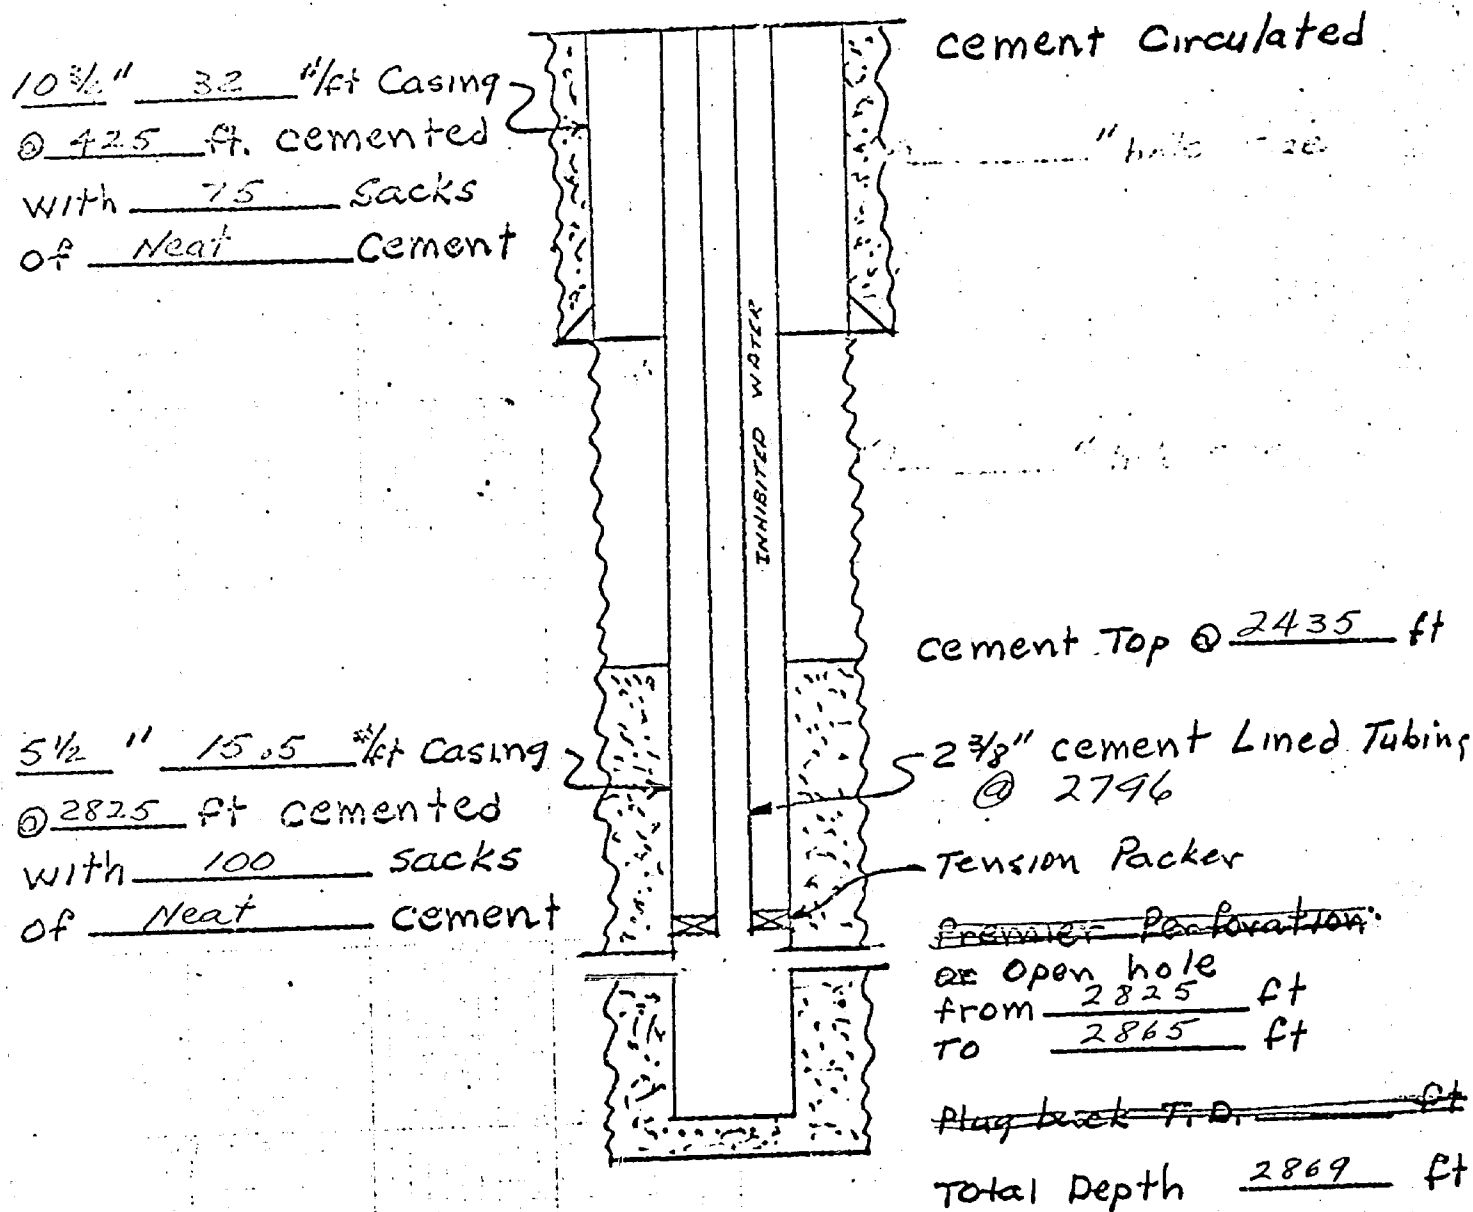 cement Circulated
10 3/4" 32 #/ft Casing
@ 425 ft. cemented
with 75 Sacks
of Neat Cement
" hole size
INHIBITED WATER
" hole size
cement Top @ 2435 ft
5 1/2 " 15.5 #/ft Casing
@ 2825 ft cemented
with 100 sacks
of Neat cement
2 3/8" cement Lined Tubing
@ 2796
Tension Packer
Premier Perforation
or Open hole
from 2825 ft
To 2865 ft
Plug back T.D. ft
Total Depth 2869 ft